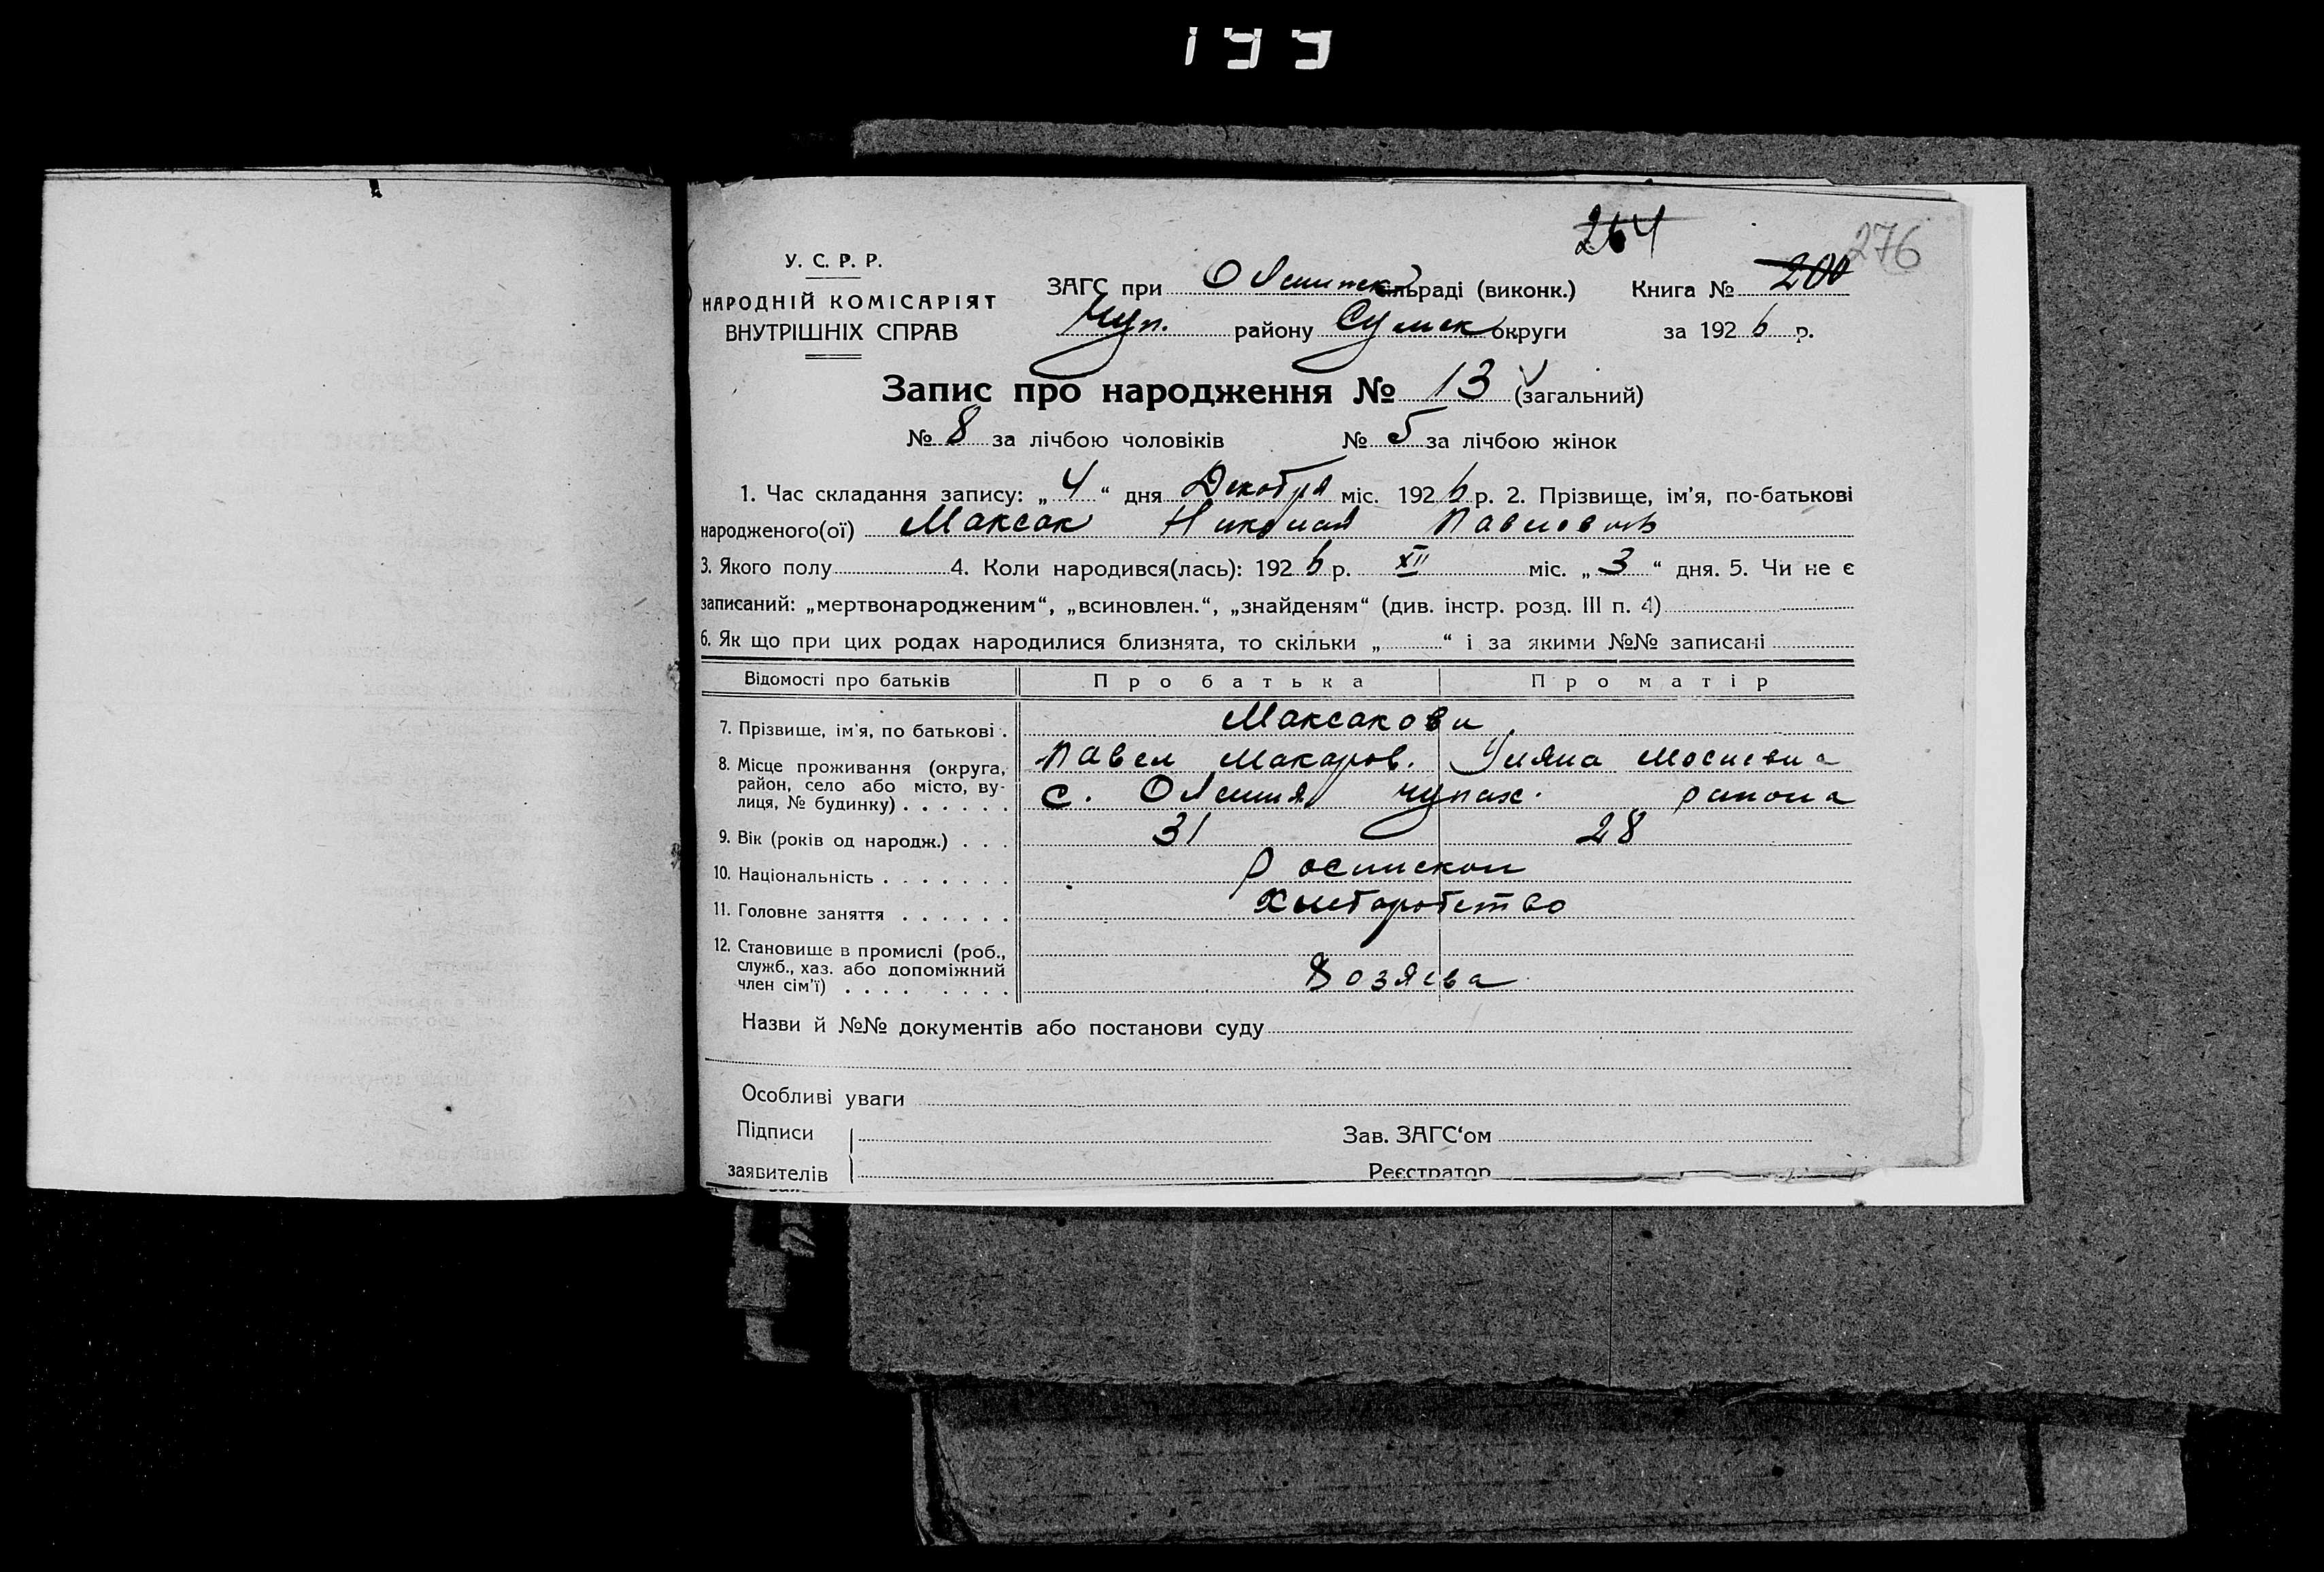 199
264
276
У. С. Р. Р.
НАРОДНІЙ КОМІСАРІЯТ
ВНУТРІШНІХ СПРАВ
ЗАГС при сільраді (виконк.) Книга № 200
Чуп. району Сумск округи за 1926 р.
Запис про народження № 13 (загальний)
№ 8 за лічбою чоловіків № 5 за лічбою жінок
1. Час складання запису: „ 4 “ дня Декабря міс. 1926 р. 2. Прізвище, ім'я, по-батькові
народженого(ої) Максак Николай Павлович
3. Якого полу 4. Коли народився(лась): 1926 р. XII міс. „ 3 “ дня. 5. Чи не є
записаний: „мертвонародженим“, „всиновлен.“, „знайденям“ (див. інстр. розд. III п. 4)
6. Як що при цих родах народилися близнята, то скільки „ “ і за якими №№ записані
Відомості про батьків Про батька Про матір
7. Прізвище, ім'я, по батькові . Максакови
Павел Макаров. Уляна
8. Місце проживання (округа, район, село або місто, вулиця, № будинку) . . . . . . с. чупах. района
9. Вік (років од народж.) . . . 31 28
10. Національність . . . . . . .
11. Головне заняття . . . . . .
12. Становище в промислі (роб., служб., хаз. або допоміжний член сім'ї) . . . . . . . .
Назви й №№ документів або постанови суду
Особливі уваги
Підписи Зав. ЗАГС‘ом
заявителів Реєстратор